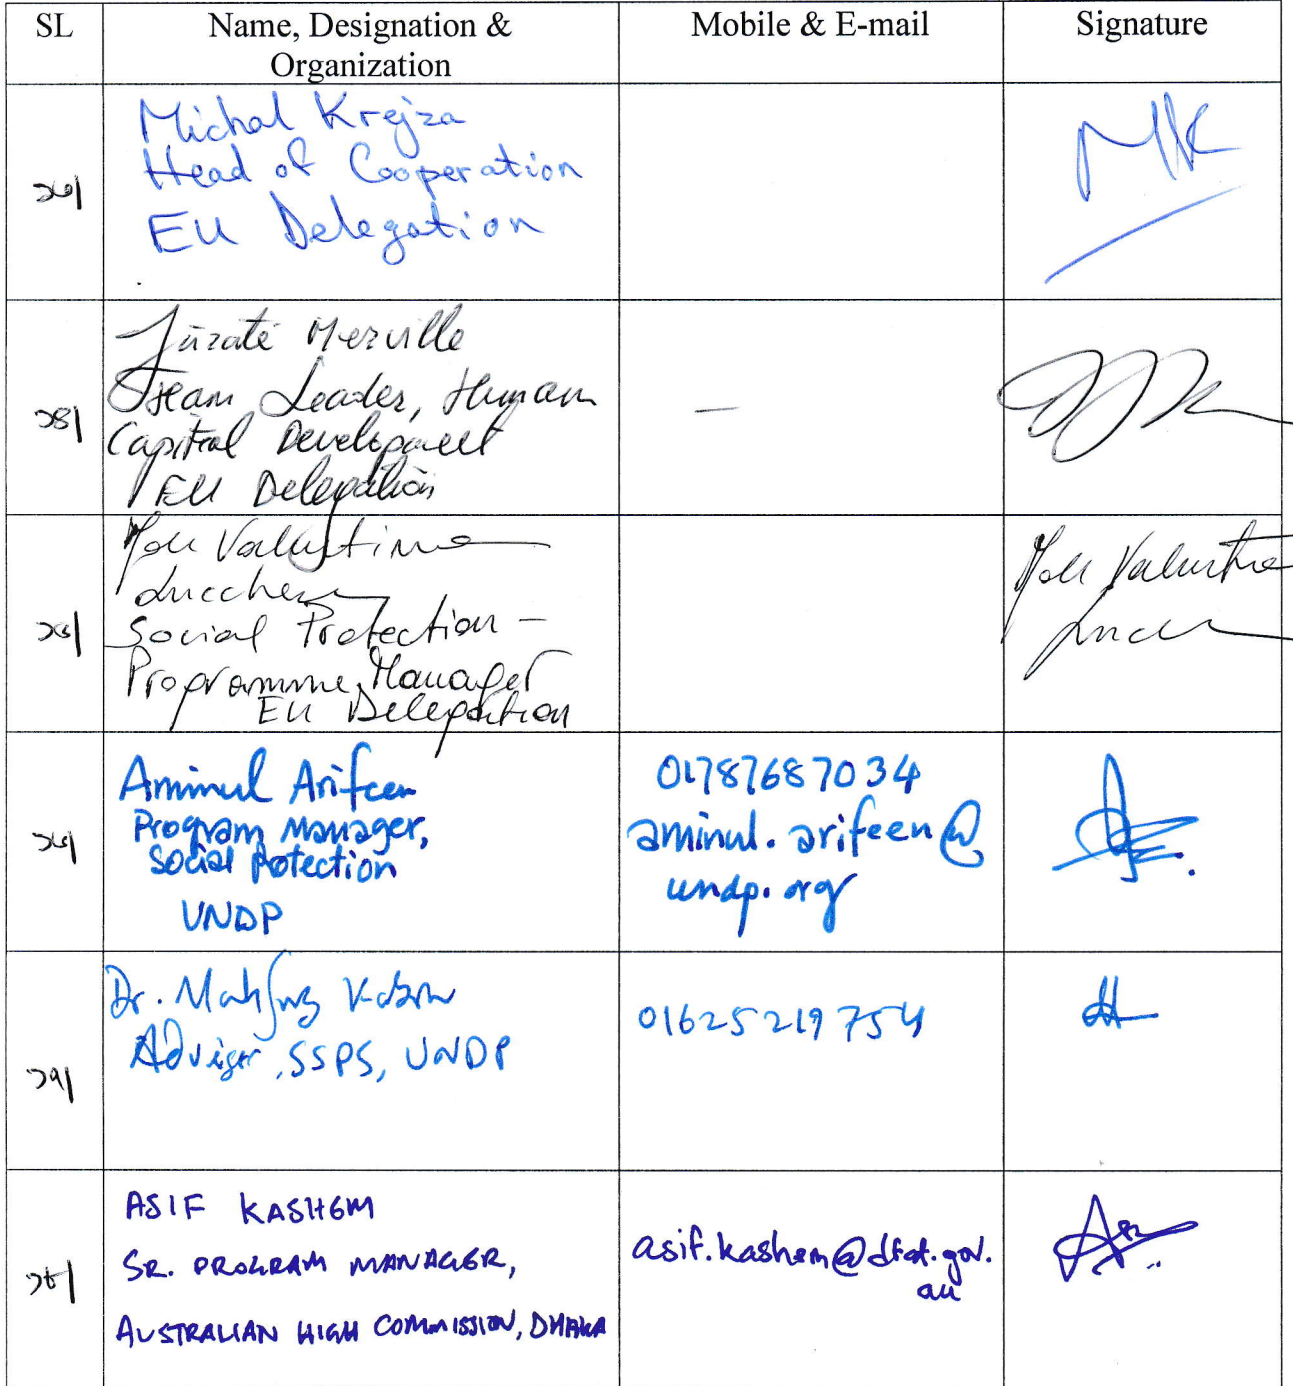 SL
Name, Designation &
Organization
Mobile & E-mail
Signature
১৩|
Michal Krejza
Head of Cooperation
EU Delegation
MK
১৪|
Jūratė Merville
Team Leader, Human
Capital Development
EU Delegation
—
১৫|
Valentina
Lucchese
Social Protection -
Programme Manager
EU Delegation
Valentina
১৬|
Aminul Arifeen
Program Manager,
Social Protection
UNDP
01787687034
aminul.arifeen@
undp.org
১৭|
Dr. Mahfuz Kabir
Adviser, SSPS, UNDP
01625219754
১৮|
ASIF KASHEM
SR. PROGRAM MANAGER,
AUSTRALIAN HIGH COMMISSION, DHAKA
asif.kashem@dfat.gov.
au